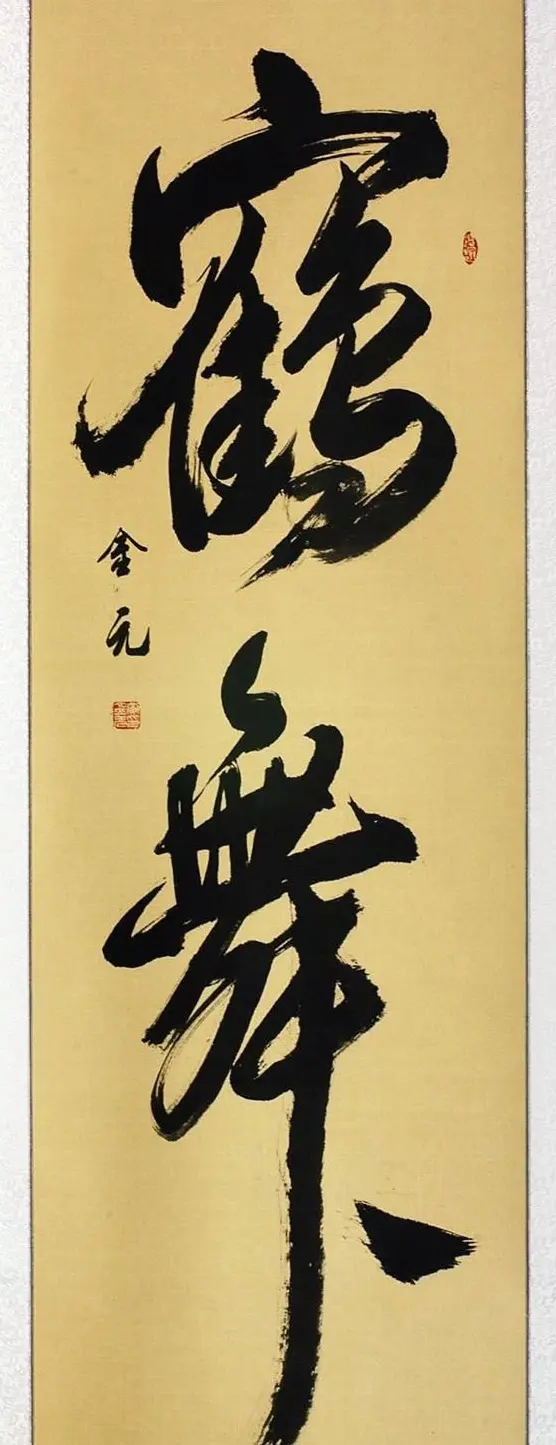 鶴舞
金元